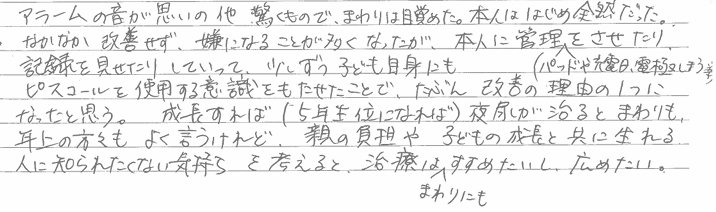 アラームの音が思いの他 驚くもので、まわりは目覚めた。本人ははじめ全然だった。
なかなか 改善せず、嫌になることが多くなったが、本人に管理をさせたり、
記録を見せたりしていって、少しずつ子ども自身にも (パッドや充電、電極をしまう等)
ピスコールを使用する意識をもたせたことで、たぶん 改善の理由の1つに
なったと思う。 成長すれば(5年生位になれば)夜尿が治るとまわりも、
年上の方々も よく言うけれど、親の負担や 子どもの成長と共に生れる
人に知られたくない気持ち を考えると、治療はすすめたいし、広めたい。
まわりにも